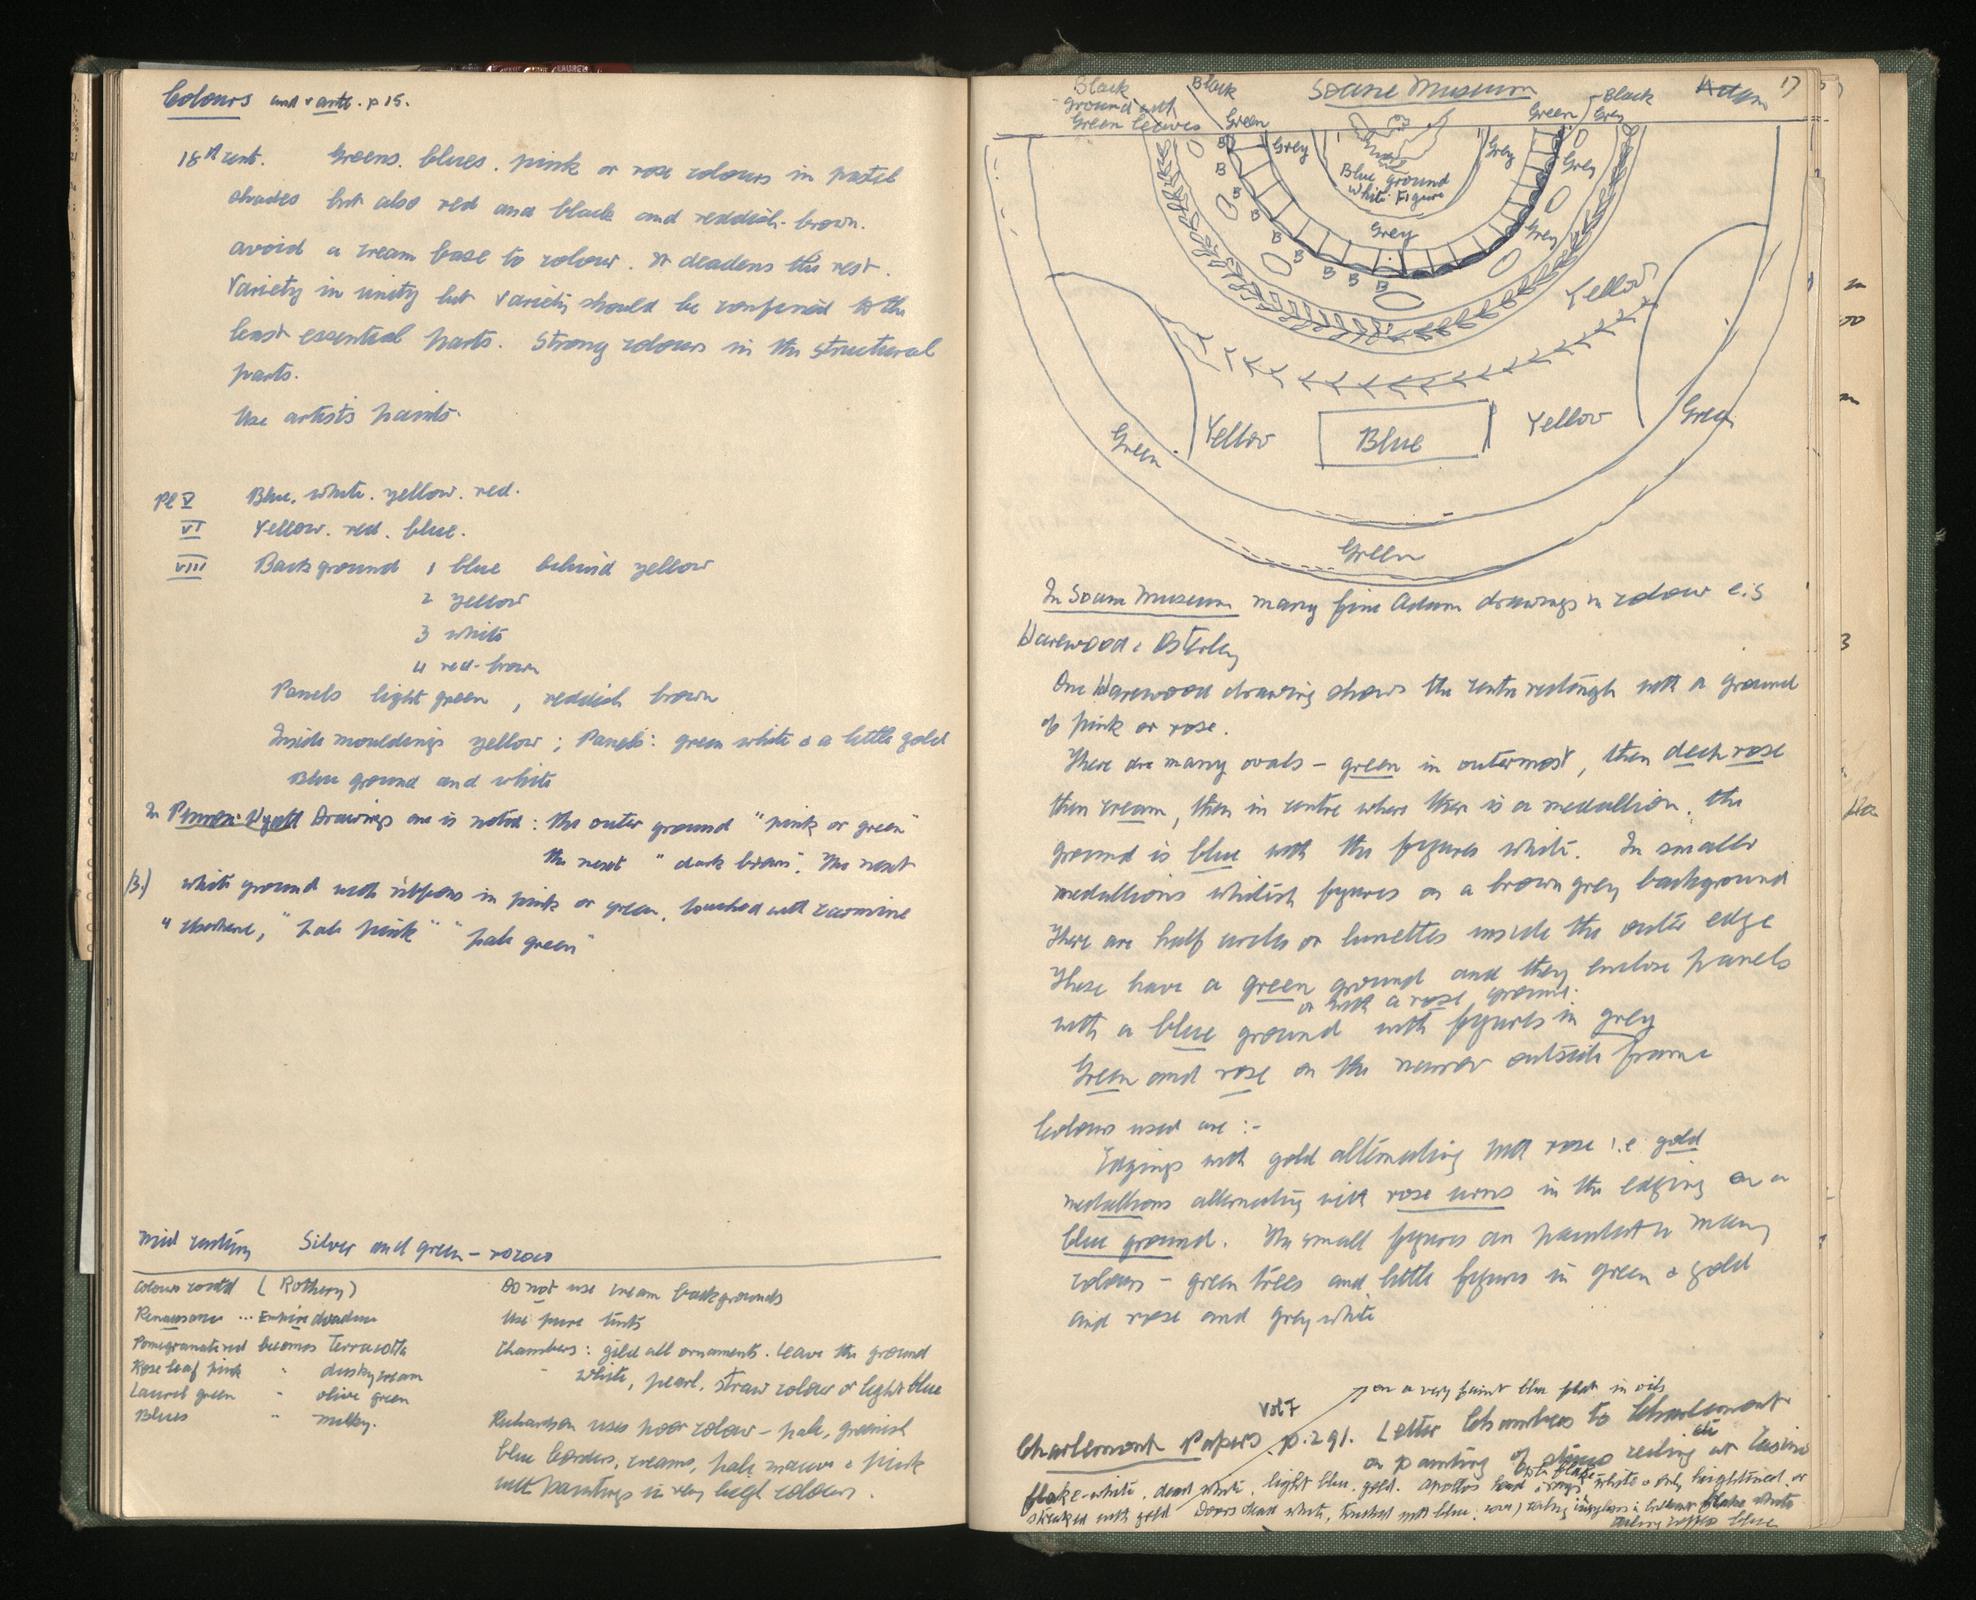 Colours and v ante. p 15.
18th cent. Greens. blues. pink or rose colours in pastel
shades but also red and black and reddish-brown.
avoid a cream base to colour. It deadens the rest.
Variety in unity but variety should be confined to the
least essential parts. Strong colours in the structural
parts.
Use artists paints.
Pl V Blue. white. yellow. red.
VI Yellow. red. blue.
VIII Background 1 blue behind yellow
2 yellow
3 white
4 red-brown
Panels light green, reddish brown
Inside mouldings yellow; Panels: green white & a little gold
Blue ground and white
In Wyatt Drawings one is noted: the outer ground "pink or green"
the next "dark brown". The next
(3.) white ground with ribbons in pink or green, touched with carmine
" pale pink" "pale green"
Mid century Silver and green - rococo
Colours contd (Rothery)
Renaissance ... Empire decadence
Pomegranate red becomes Terracotta
Rose leaf pink " dusky cream
Laurel green " olive green
Blues " milky.
Do not use cream backgrounds
Use pure tints
Chambers: gild all ornaments. Leave the ground
white, pearl, straw colour or light blue
Richardson uses poor colour - pale, greenish
blue borders, creams, pale mauve & pink
with paintings in very high colours.
Soane Museum Adam 17
Black ground with Green leaves
Black
Green
Grey
Blue ground
White Figure
Grey
Green
Black
Grey
Grey
Grey
Grey
B B B B B B B B B
Yellow
Green
Yellow
Blue
Yellow
Green
Green
In Soane Museum many fine Adam drawings in colour e.g
Harewood & Osterley
One Harewood drawing shows the centre rectangle with a ground
of pink or rose.
There are many ovals - green in outermost, then deep rose
then cream, then in centre where there is a medallion, the
ground is blue with the figures white. In smaller
medallions whitish figures on a brown grey background
There are half circles or lunettes inside the outer edge
These have a green ground and they enclose panels
or with a rose ground.
with a blue ground with figures in grey
Green and rose on the narrow outside frame
Colours used are :-
Edgings with gold alternating with rose i.e gold
medallions alternating with rose urns in the edging on a
blue ground. The small figures are painted in many
colours - green trees and little figures in green & gold
and rose and grey white
on a very faint blue flat in oils
Vol 7
Charlemont Papers p.291. Letter Chambers to Charlemont
on painting of ceiling at Casino
flake-white, dead white, light blue, gold. Apollos head & rays white & only heightened or
streaked with gold Doors dead white, touched with blue; flake white
blue